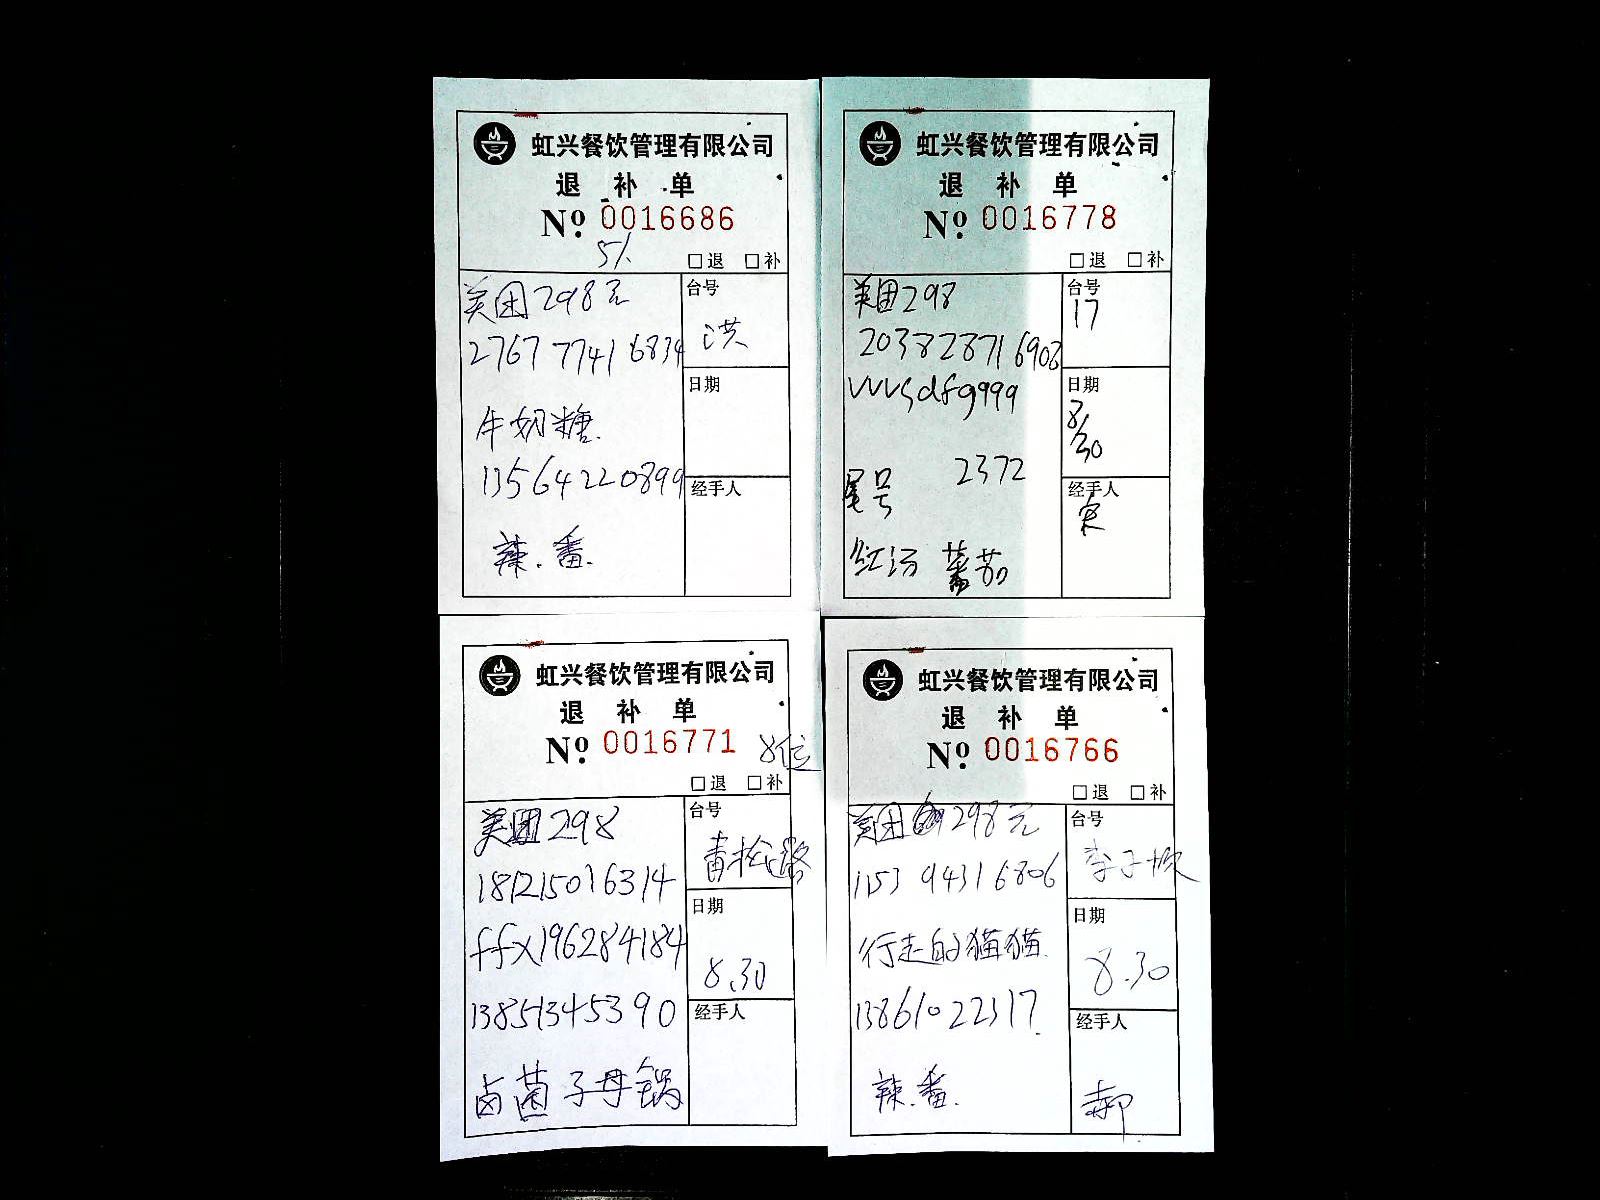 虹兴餐饮管理有限公司
退 补 单
No. 0016686
5人
□退 □补
美团298元
台号
洪
2767 7741 6834
日期
牛奶糖.
13564220899
经手人
辣.番.
虹兴餐饮管理有限公司
退 补 单
No. 0016778
□退 □补
美团298
台号
17
203828716903
日期
8/30
vvvsdfg999
尾号 2372
经手人
红汤 蕃茄
虹兴餐饮管理有限公司
退 补 单
No. 0016771
8位
□退 □补
美团298
台号
青松路
181215016314
日期
8.30
ffx196284184
13851345390
经手人
卤菌子母锅
虹兴餐饮管理有限公司
退 补 单
No. 0016766
□退 □补
美团298元
台号
李子坝
1153 9431 6806
日期
8.30
行走的猫猫.
13861022317.
经手人
郝
辣.番.